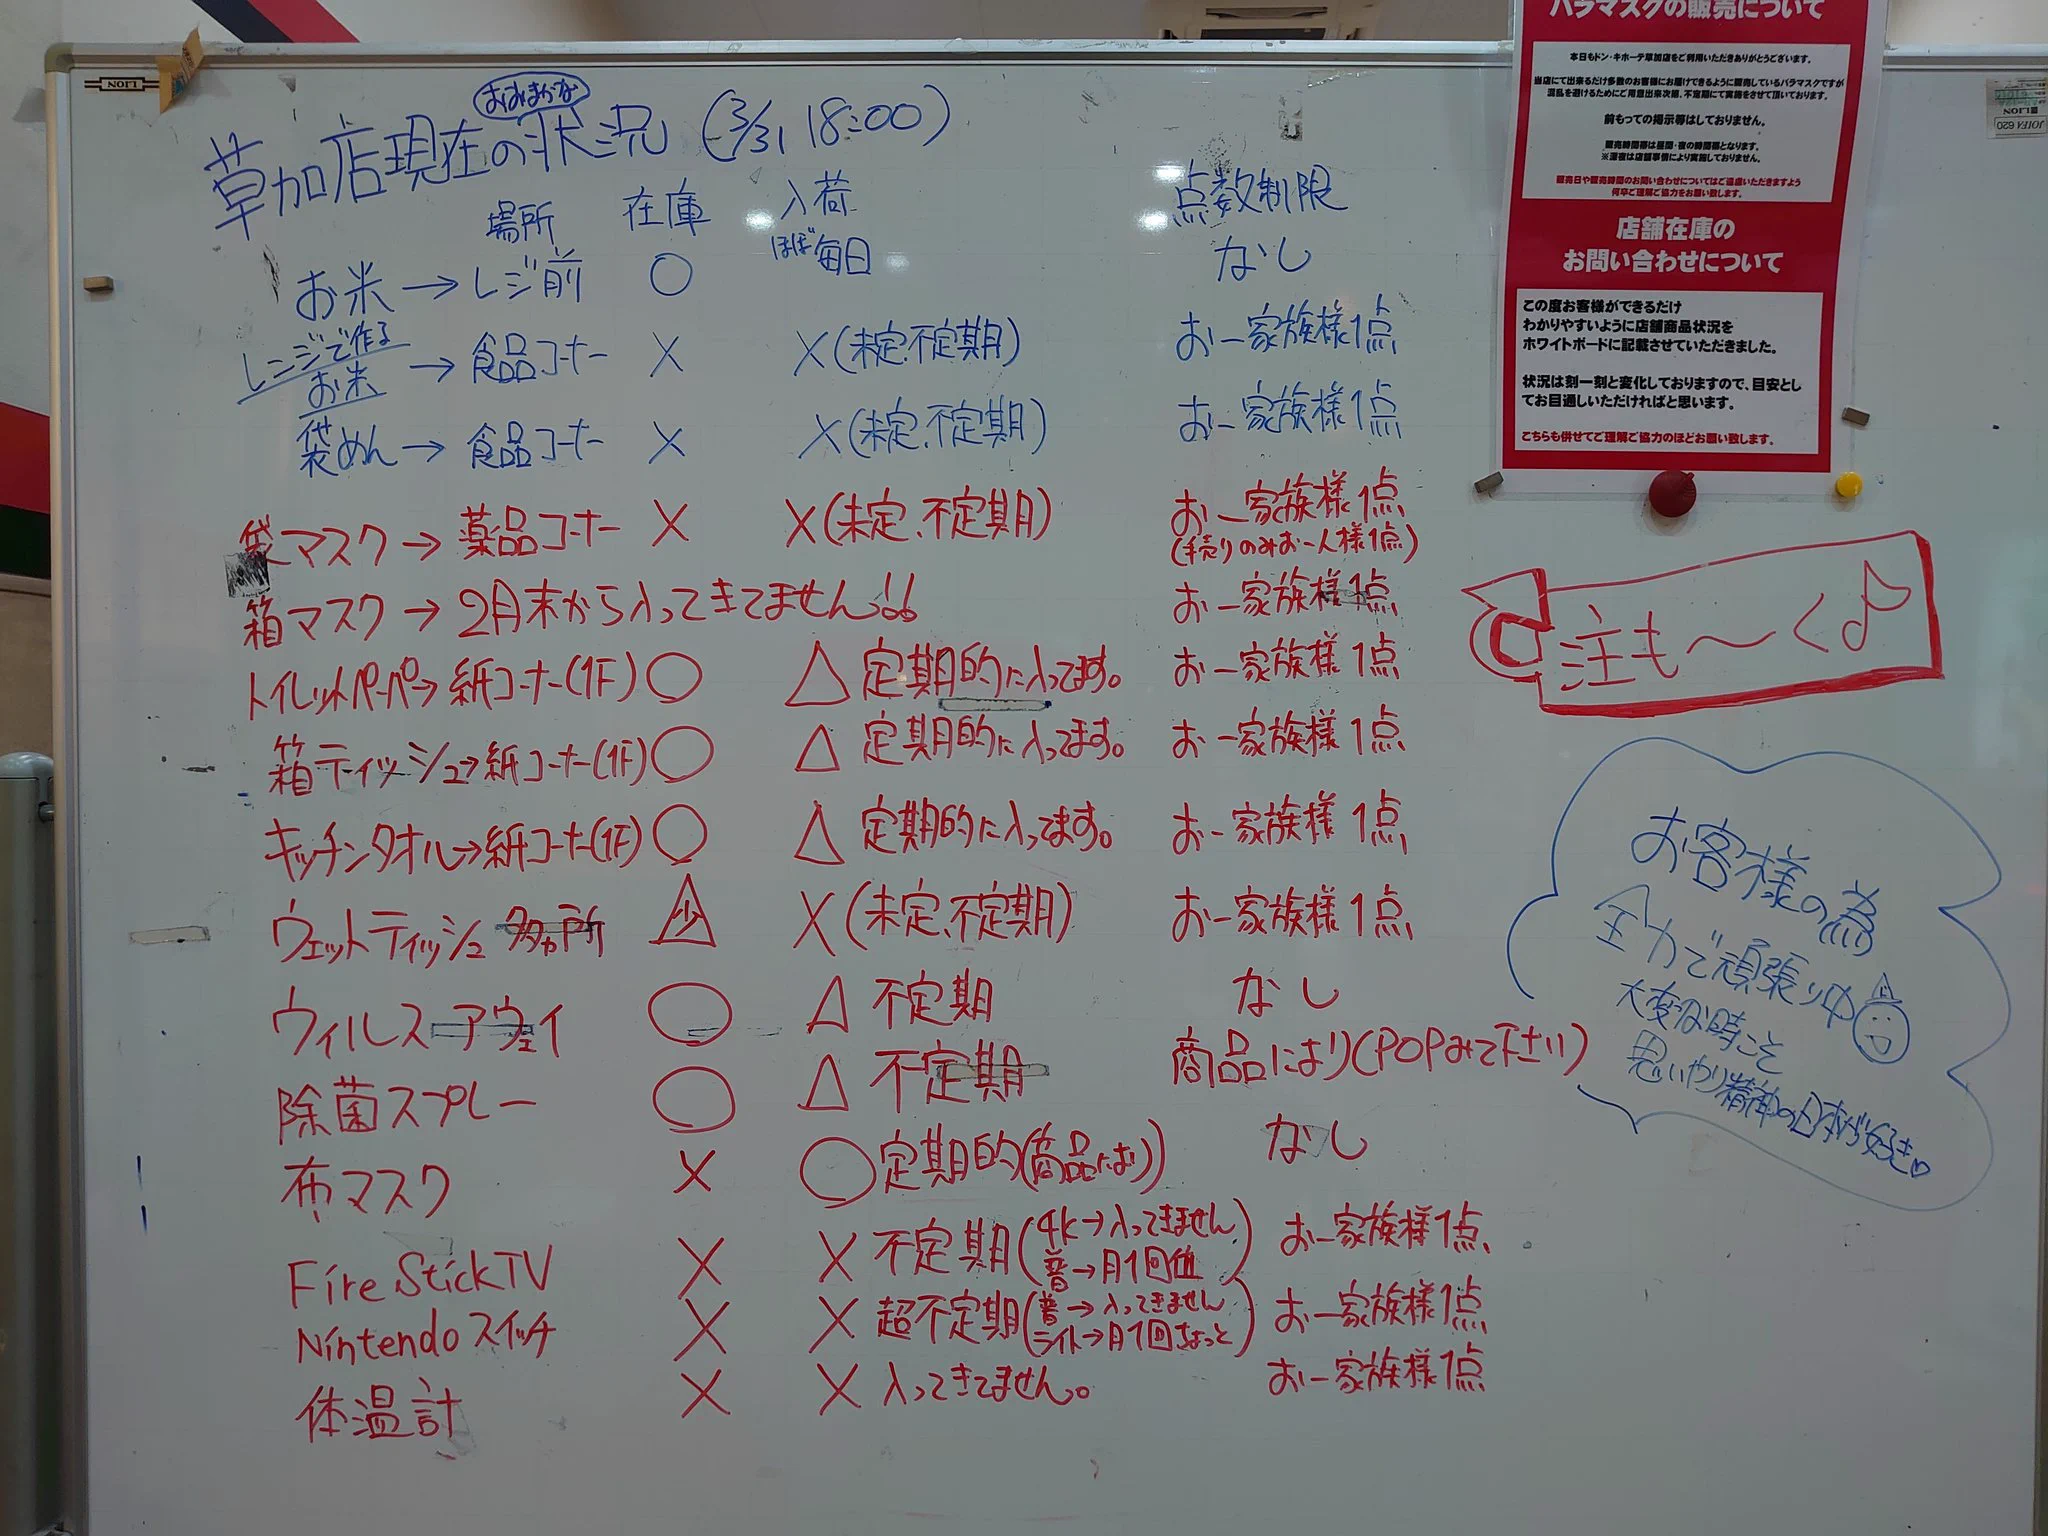 LION
草加店現在のおおまかな状況 (3/31 18:00)
場所 在庫 入荷 点数制限
お米→レジ前 ○ ほぼ毎日 なし
レンジで作るお米→食品コーナー × ×(未定、不定期) お一家族様1点
袋めん→食品コーナー × ×(未定、不定期) お一家族様1点
袋マスク→薬品コーナー × ×(未定、不定期) お一家族様1点
(手売りのみお一人様1点)
箱マスク→2月末から入ってきてません!! お一家族様1点
トイレットペーパー→紙コーナー(1F) ○ △ 定期的に入ってます。 お一家族様1点
箱ティッシュ→紙コーナー(1F) ○ △ 定期的に入ってます。 お一家族様1点
キッチンタオル→紙コーナー(1F) ○ △ 定期的に入ってます。 お一家族様1点
ウェットティッシュ 多ヵ所 △少 ×(未定、不定期) お一家族様1点
ウィルスアウェイ ○ △ 不定期 なし
除菌スプレー ○ △ 不定期 商品により(POPみて下さい)
布マスク × ○ 定期的(商品により) なし
Fire Stick TV × × 不定期(4K→入ってきません 普→月1回位) お一家族様1点
Nintendoスイッチ × × 超不定期(普→入ってきません ライト→月1回ちょっと) お一家族様1点
体温計 × × 入ってきてません。 お一家族様1点
バラマスクの販売について
本日もドン・キホーテ草加店をご利用いただきありがとうございます。
当店にて出来るだけ多数のお客様にお届けできるように販売しているバラマスクですが
混乱を避けるためにご用意出来次第、不定期にて実施をさせて頂いております。
前もっての掲示等はしておりません。
販売時間帯は昼間・夜の時間帯となります。
※深夜は店舗事情により実施しておりません。
販売日や販売時間のお問い合わせについてはご遠慮いただきますよう
何卒ご理解ご協力をお願い致します。
店舗在庫の
お問い合わせについて
この度お客様ができるだけ
わかりやすいように店舗商品状況を
ホワイトボードに記載させていただきました。
状況は刻一刻と変化しておりますので、目安とし
てお目通しいただければと思います。
こちらも併せてご理解ご協力のほどお願い致します。
注も～く♪
お客様の為
全力で頑張り中
大変な時こそ
思いやり精神の日本が好き♡
LION
JOIFA 620